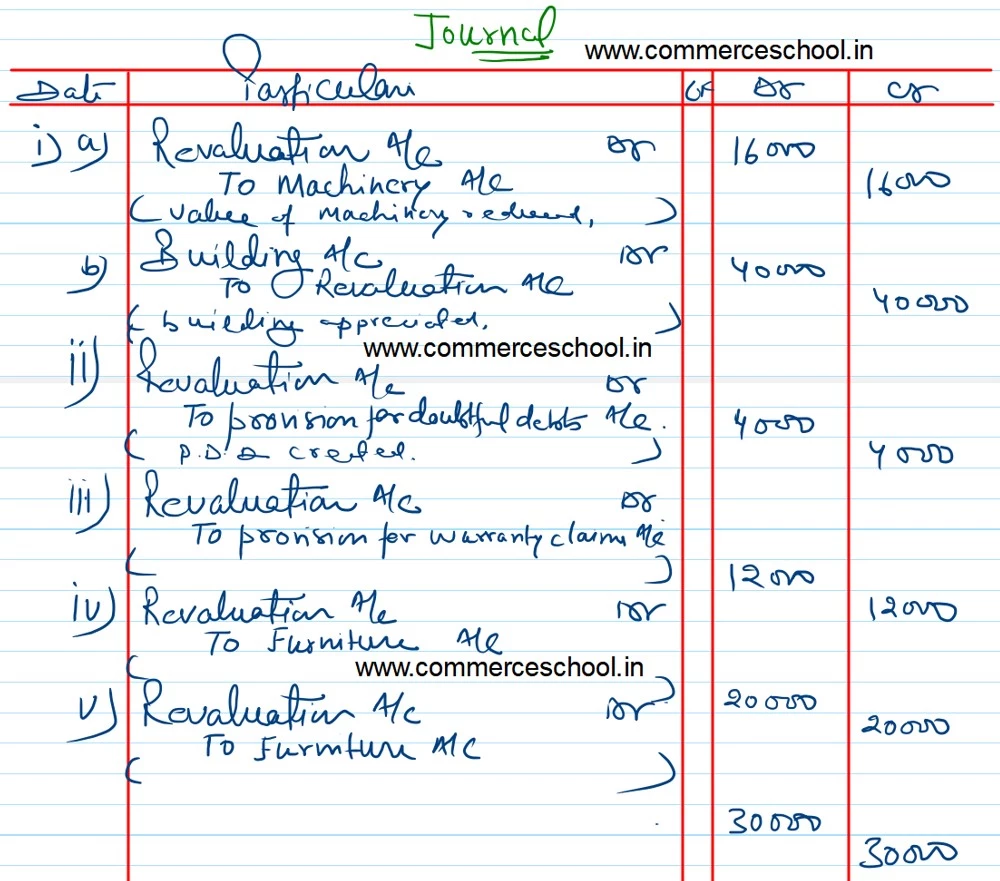 Journal www.commerceschool.in
Date Particulars LF Dr Cr
i) a) Revaluation A/c Dr 16000
To Machinery A/c 16000
( Value of machinery reduced, )
b) Building A/c Dr 40000
To Revaluation A/c 40000
( building appreciated, )
www.commerceschool.in
ii) Revaluation A/c Dr
To provision for doubtful debts A/c. 4000
( P.D.D created. ) 4000
iii) Revaluation A/c Dr
To provision for warranty claims A/c
( ) 12000
iv) Revaluation A/c Dr 12000
To Furniture A/c
( www.commerceschool.in )
v) Revaluation A/c Dr 20000
To Furniture A/c 20000
( )
30000
30000